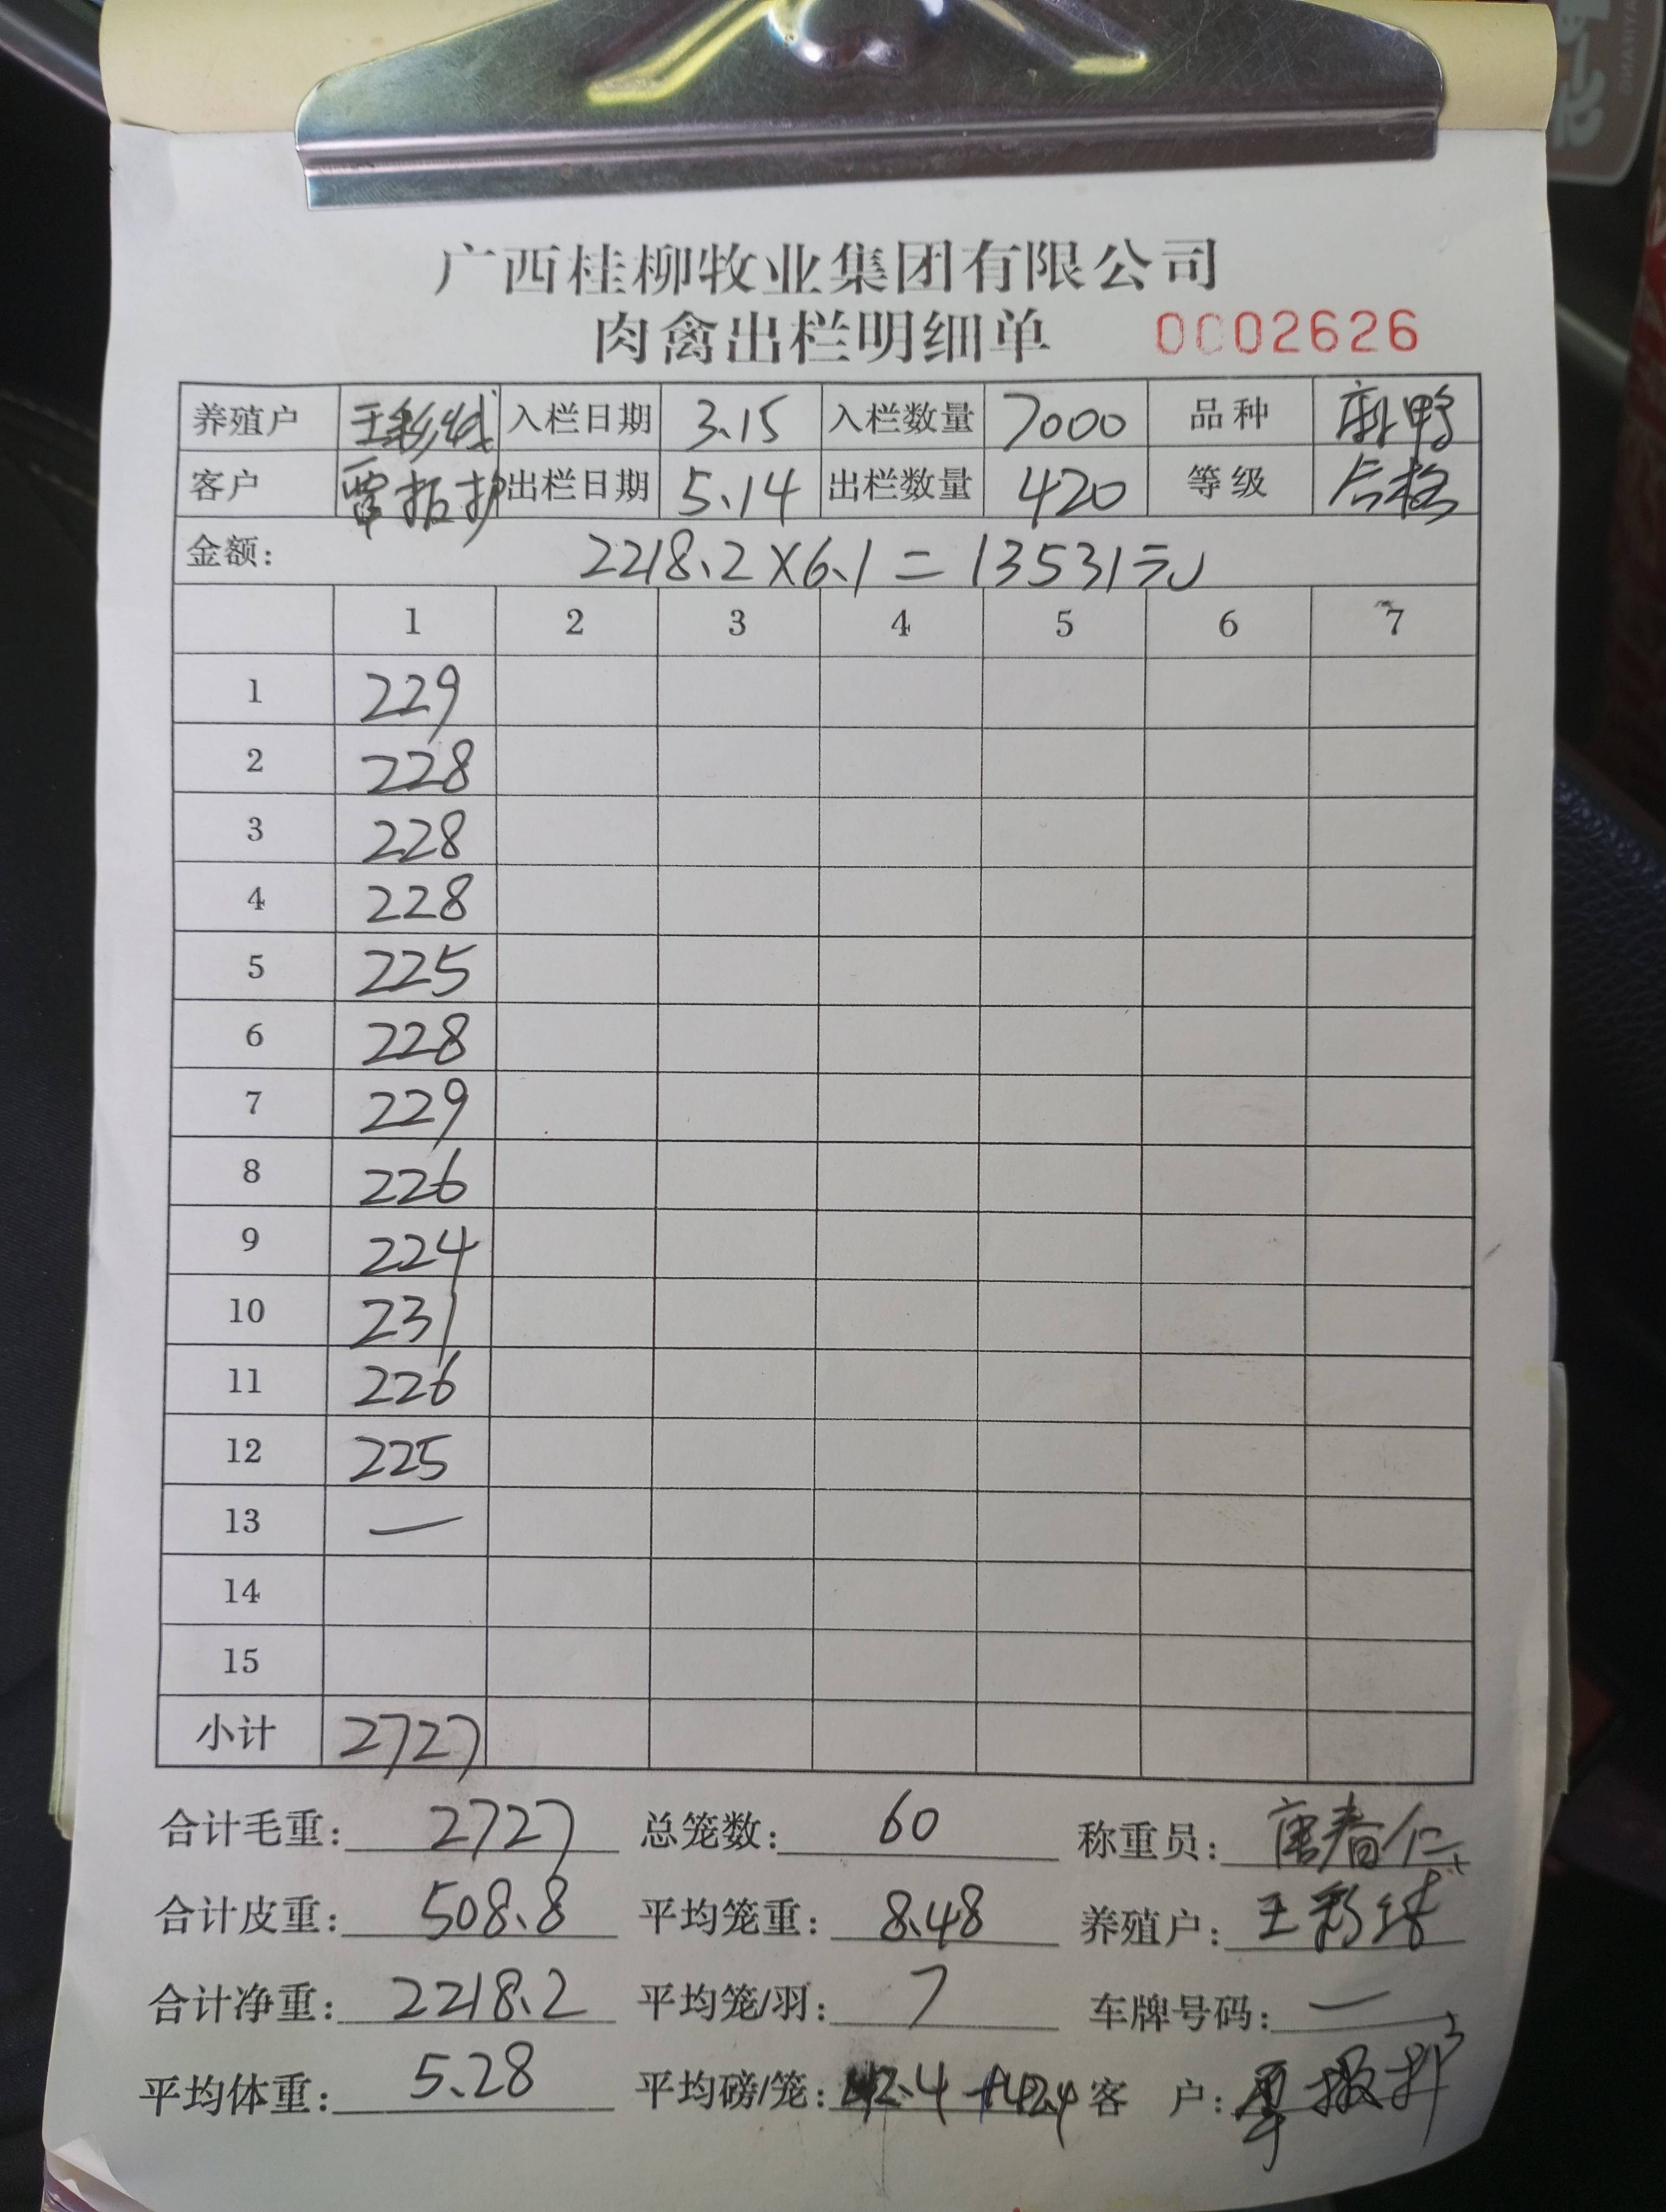 广西桂柳牧业集团有限公司
肉禽出栏明细单 0002626
养殖户 王彩线 入栏日期 3.15 入栏数量 7000 品种 麻鸭
客户 出栏日期 5.14 出栏数量 420 等级 合格
金额: 2218.2×6.1=13531元
1 2 3 4 5 6 7
1 229
2 228
3 228
4 228
5 225
6 228
7 229
8 226
9 224
10 231
11 226
12 225
13 —
14
15
小计 2727
合计毛重: 2727 总笼数: 60 称重员: 唐春仁
合计皮重: 508.8 平均笼重: 8.48 养殖户: 王彩线
合计净重: 2218.2 平均笼/羽: 7 车牌号码: —
平均体重: 5.28 平均磅/笼: 42.4 客 户: